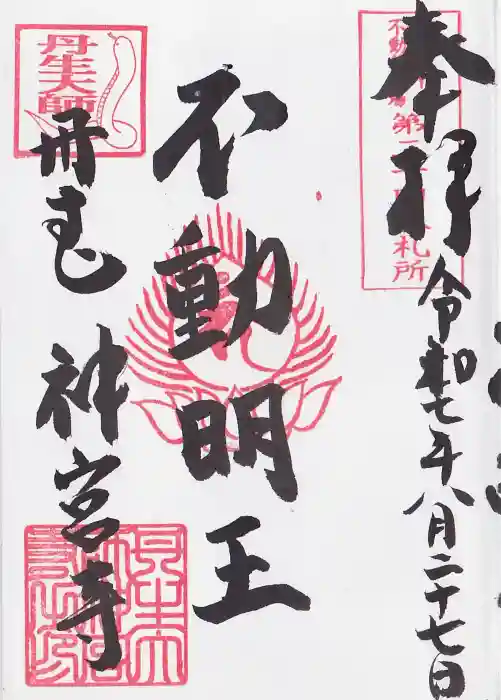 奉拝
令和七年八月二十七日
不動明王
丹生
神宮寺
丹生大師